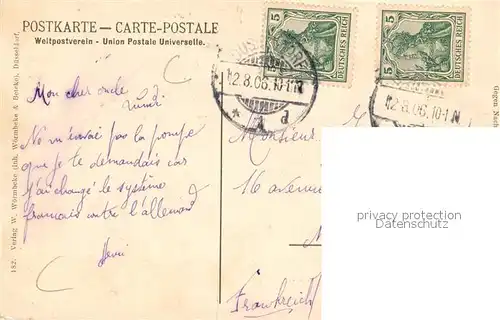 POSTKARTE — CARTE-POSTALE
Weltpostverein - Union Postale Universelle.
5 DEUTSCHES REICH 5
5 DEUTSCHES REICH 5
12.8.06.10-11N
12.8.06.10-11N
Mon cher oncle
Lundi
Ne m'envoie pas la pompe
que je te demandais car
j'ai changé le système
français contre l'allemand
Henri
Monsieur
16 avenue
Frankreich
182. Verlag W. Würmbcke (Inh. Würmbcke & Bercke), Düsseldorf.
privacy protection
Datenschutz